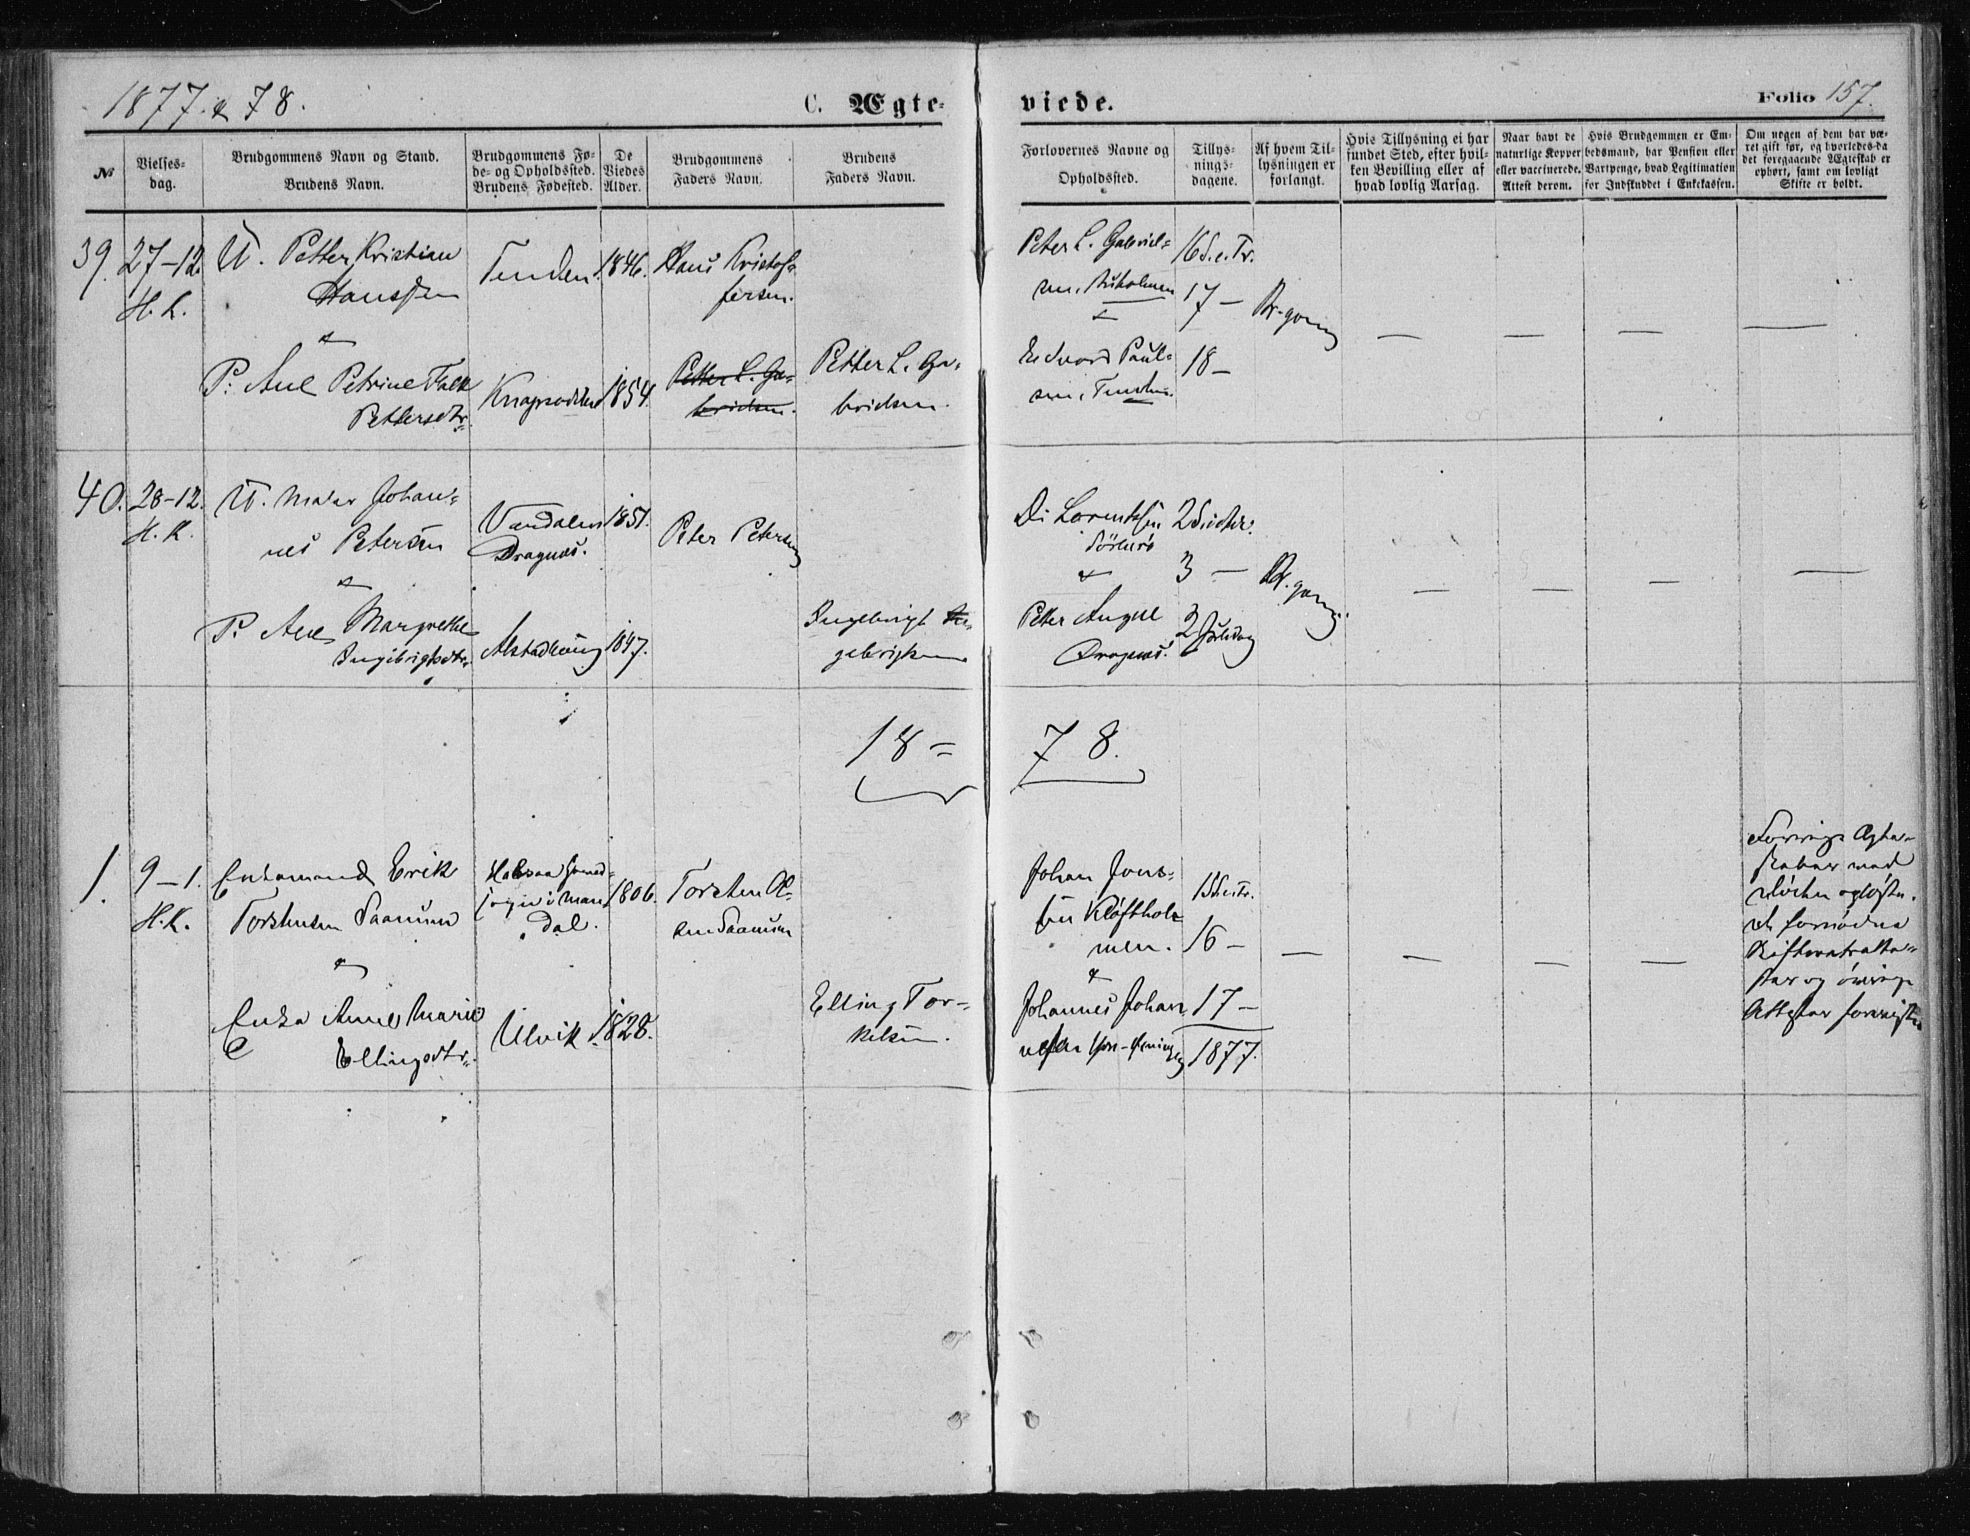 1877 & 78.
C. Ægte-
viede.
Folio 157.
№
Vielses-
dag.
Brudgommens Navn og Stand.
Brudens Navn.
Brudgommens Fø-
de- og Opholdssted.
Brudens Fødested.
De
Viedes
Alder.
Brudgommens
Faders Navn.
Brudens
Faders Navn.
Forlovernes Navne og
Opholdssted.
Tillys-
nings-
dagene.
Af hvem Til-
lysningen er
forlangt.
Hvis Tillysning ei har
fundet Sted, efter hvil-
ken Bevilling eller af
hvad lovlig Aarsag.
Naar havt de
naturlige Kopper
eller vaccinerede.
Attest derom.
Hvis Brudgommen er Em-
bedsmand, har Pension eller
Vartpenge, hvad Legitimation
for Indskuddet i Enkekassen.
Om nogen af dem har væ-
ret gift før, og hvorledes da
det foregaaende Ægteskab er
ophørt, samt om lovligt
Skifte er holdt.
39.
27-12.
H. K.
U. Petter Kristian
Hanssen
&
P: Ane Petrine Falk
Pettersdtr.
Tenden.
1846.
1854.
Hans Kristof-
fersen.
Petter L. Ga-
brielsen.
Petter L. Ga-
brielsen.
Peter L. Gabriel-
&
Edvard Paul-
16 S. e. Tr.
17 —
18 —
Br-gom
— — — —
40.
28-12.
H. K.
U. Maler Johan-
nes Petersen
&
P: Ane Margrethe
Ingebrigtsdtr.
Dragnæs.
1851.
1847.
Peter Petersen
Ingebrigt In-
gebrigtsen
Lorentsen
&
Peter Angel
Dragnæs.
3 —
2 Juledag
Br. gom
— — — —
18=
78.
1.
9-1.
H. K.
Enkemand Erik
Torstensen Saanum
&
Enke Anne Marie
Ellingsdtr.
i Man
dal.
Ulvik.
1806.
1828.
Torsten Ol-
sen Saanum
Elling Tor-
kelsen.
Johan Jons-
sen Kløfthol-
men.
&
Johannes Johan
16 —
17 —
1877.
— — — —
Forrige Ægte-
skaber med
Døden opløste.
Skifteratteste-
ster og øvrige
Attester forevist.